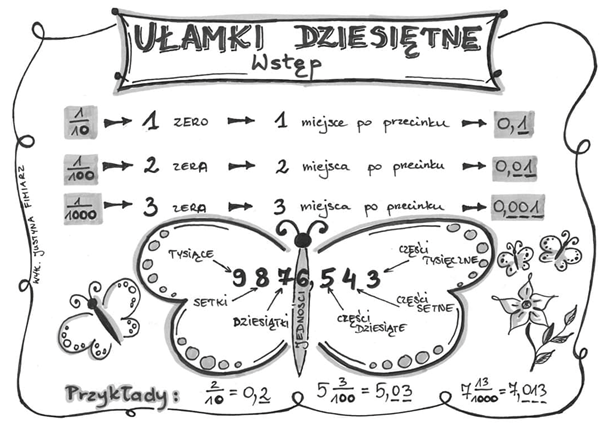 UŁAMKI DZIESIĘTNE
Wstęp
1/10 → 1 ZERO → 1 miejsce po przecinku → 0,1
1/100 → 2 ZERA → 2 miejsca po przecinku → 0,01
1/1000 → 3 ZERA → 3 miejsca po przecinku → 0,001
WYK. JUSTYNA FIMIARZ
TYSIĄCE
CZĘŚCI TYSIĘCZNE
9876,543
SETKI
CZĘŚCI SETNE
DZIESIĄTKI
JEDNOŚCI
CZĘŚCI DZIESIĄTE
Przykłady: 2/10 = 0,2 5 3/100 = 5,03 7 13/1000 = 7,013